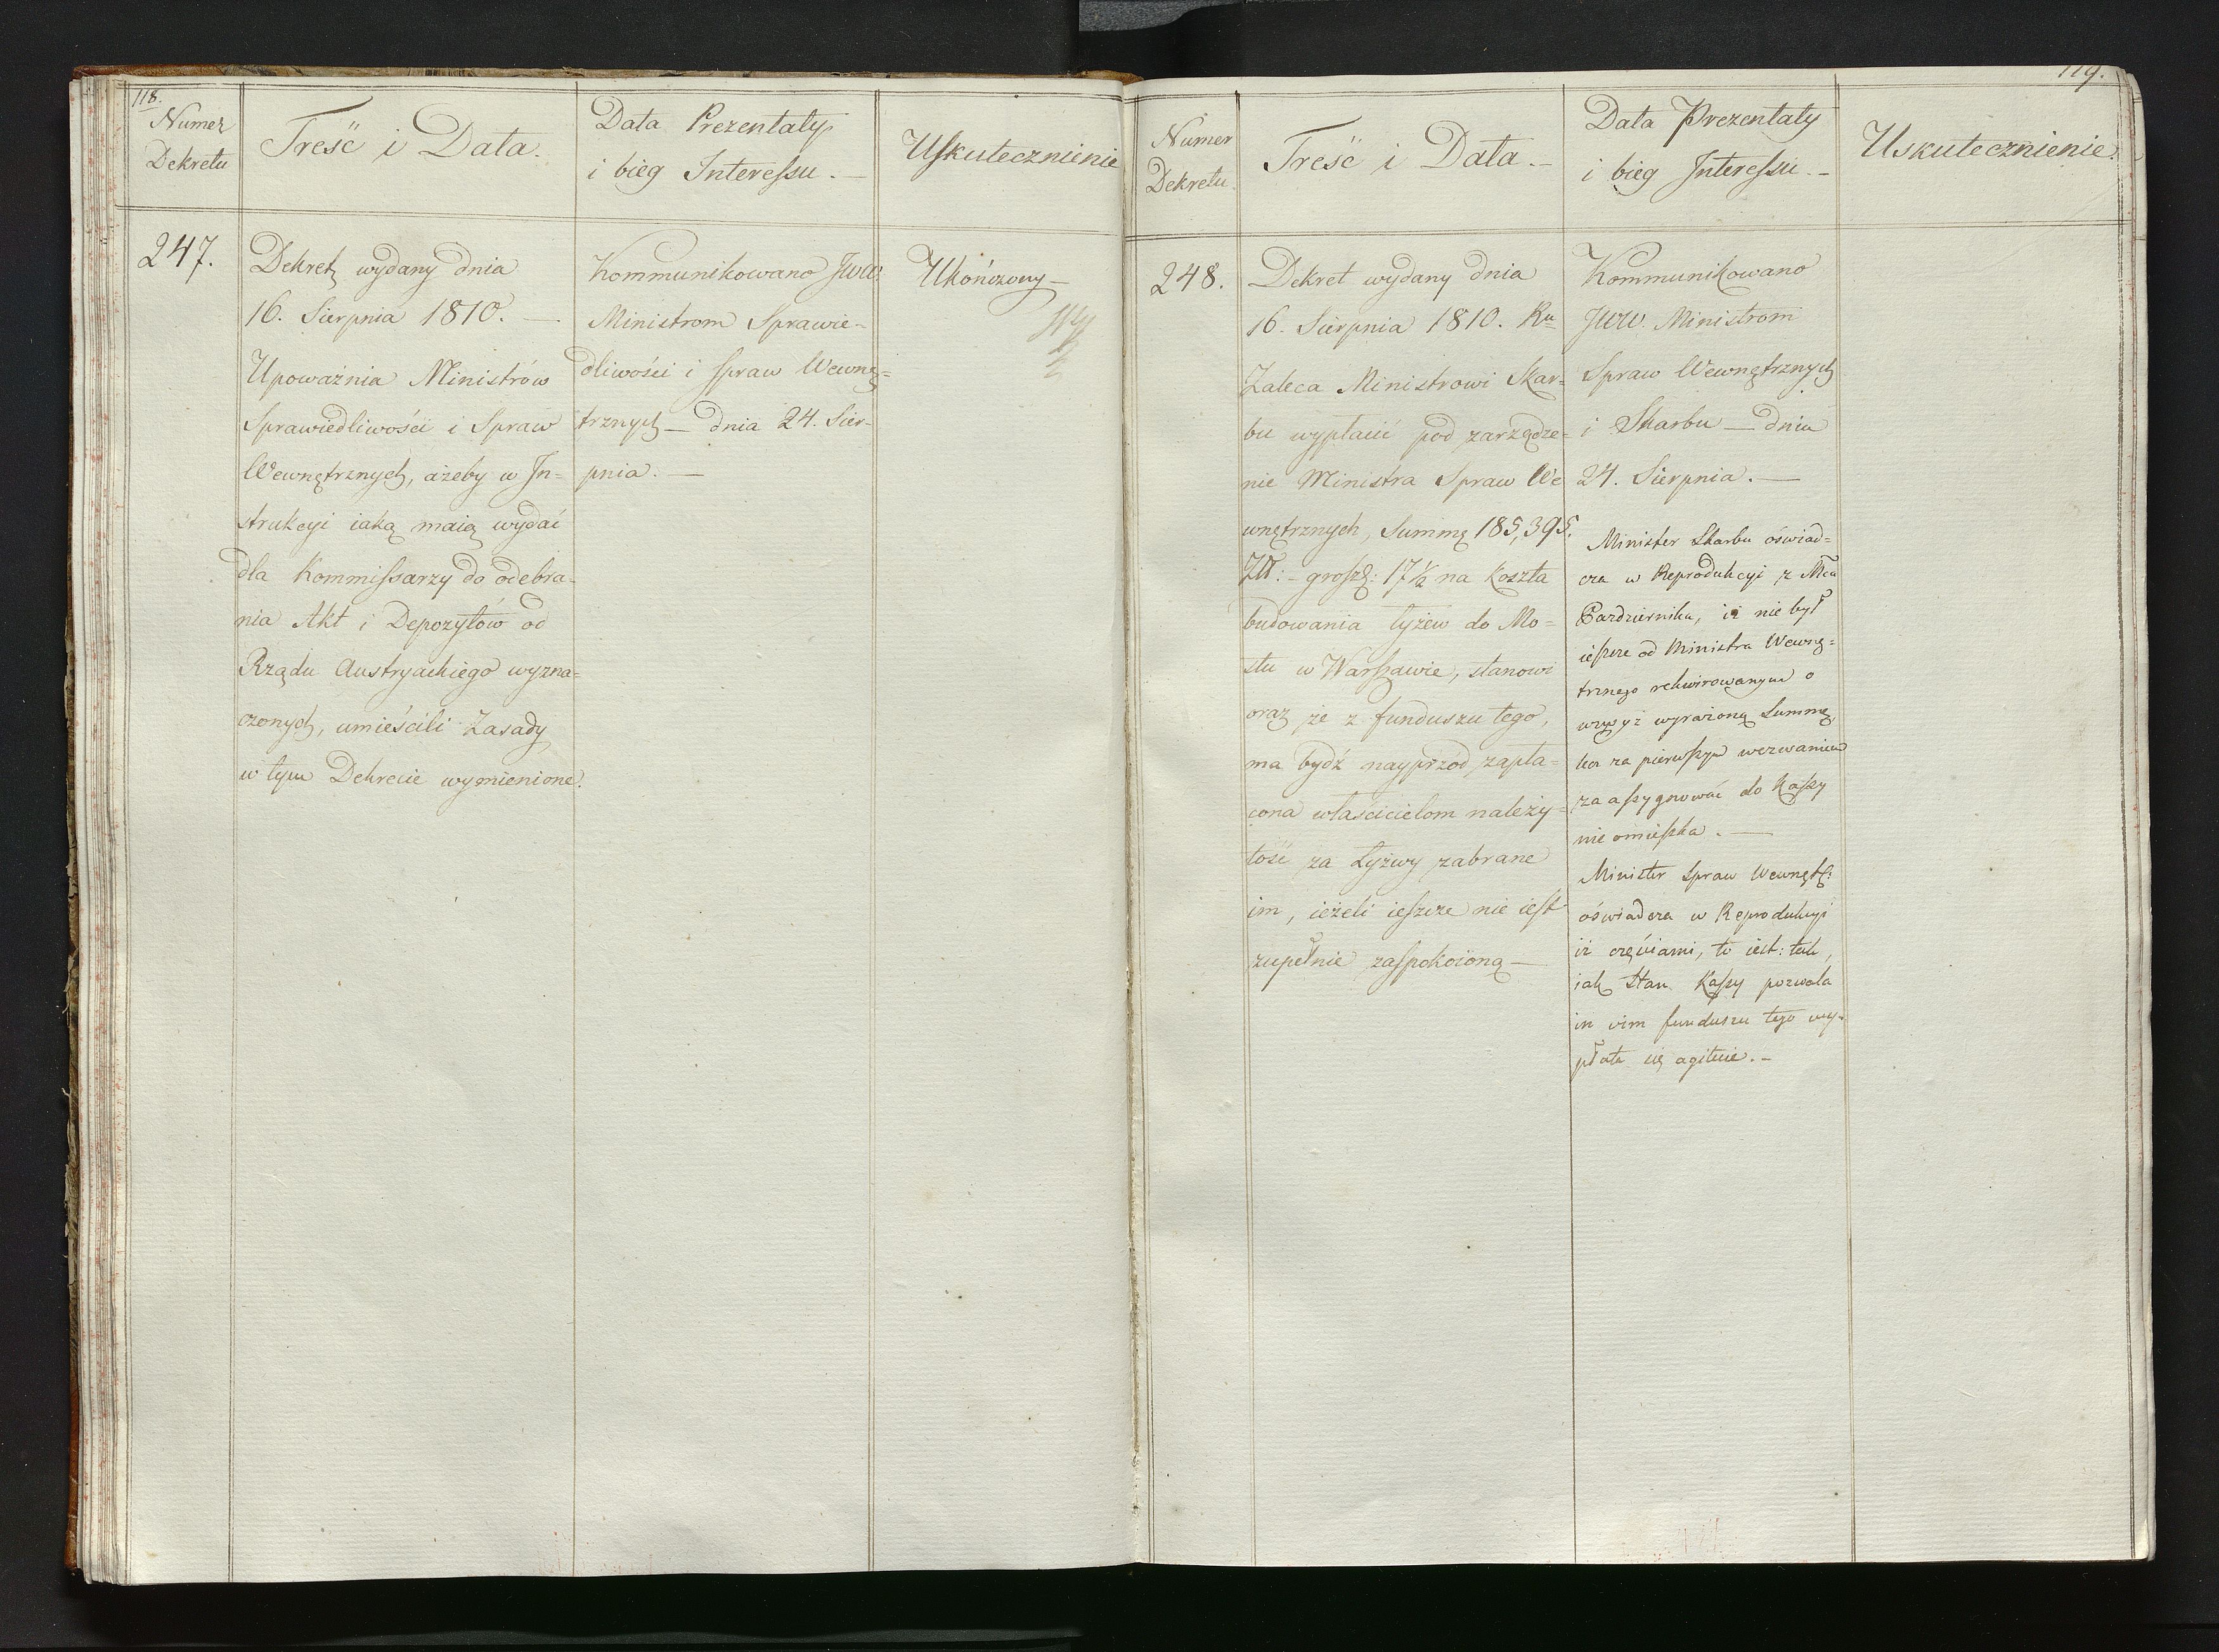 118.
Numer
Dekretu
Treść i Data.
Data Prezentaty
i bieg Interessu. —
Uskutecznienie
247.
Dekret wydany dnia
16. Sierpnia 1810. —
Upoważnia Ministrów
Sprawiedliwości i Spraw
Wewnętrznych, ażeby w In=
strukcyi iaką maią wydać
dla Kommissarzy do odebra=
nia Akt i Depozytów od
Rządu Austryackiego wyzna=
czonych, umieścili Zasady
w tym Dekrecie wymienione.
Kommunikowano JWW:
Ministrom Sprawie=
dliwości i Spraw Wewnę=
trznych — dnia 24. Sier=
pnia. —
Ukończony —
119.
Numer
Dekretu.
Treść i Data. —
Data Prezentaty
i bieg Interessu. —
Uskutecznienie.
248.
Dekret wydany dnia
16. Sierpnia 1810. Ru
Zaleca Ministrowi Skar=
bu wypłacić pod zarządze=
nie Ministra Spraw We
wnętrznych, Summę 185,395.
Złł: - groszy: 17½ na Koszta
budowania łyżew do Mo=
stu w Warszawie, stanowi
oraz że z funduszu tego,
ma bydź nayprzód zapła=
cona właścicielom należy=
tość za Łyżwy zabrane
im, ieżeli ieszcze nie iest
zupełnie zaspokoioną —
Kommunikowano
JWW. Ministrom
Spraw Wewnętrznych
i Skarbu — dnia
24. Sierpnia. —
Minister Skarbu oświad=
cza w Reprodukcyi z Mca
Października, iż nie był
ieszcze od Ministra Wewnę=
trznego rekwirowanym o
wyżyż wyrażoną Summę,
lecz za pierwszym wezwaniem
zaassygnować do Kassy
nie omieszka. —
Minister Spraw Wewnętrz:
oświadcza w Reprodukcyi
iż częściami, to iest: tak,
iak Stan Kassy pozwala
in vim funduszu tego wy=
płata się agituie. —